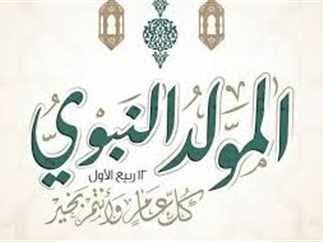 المولد النبوي
١٢ ربيع الأول
كل عام وأنتم بخير